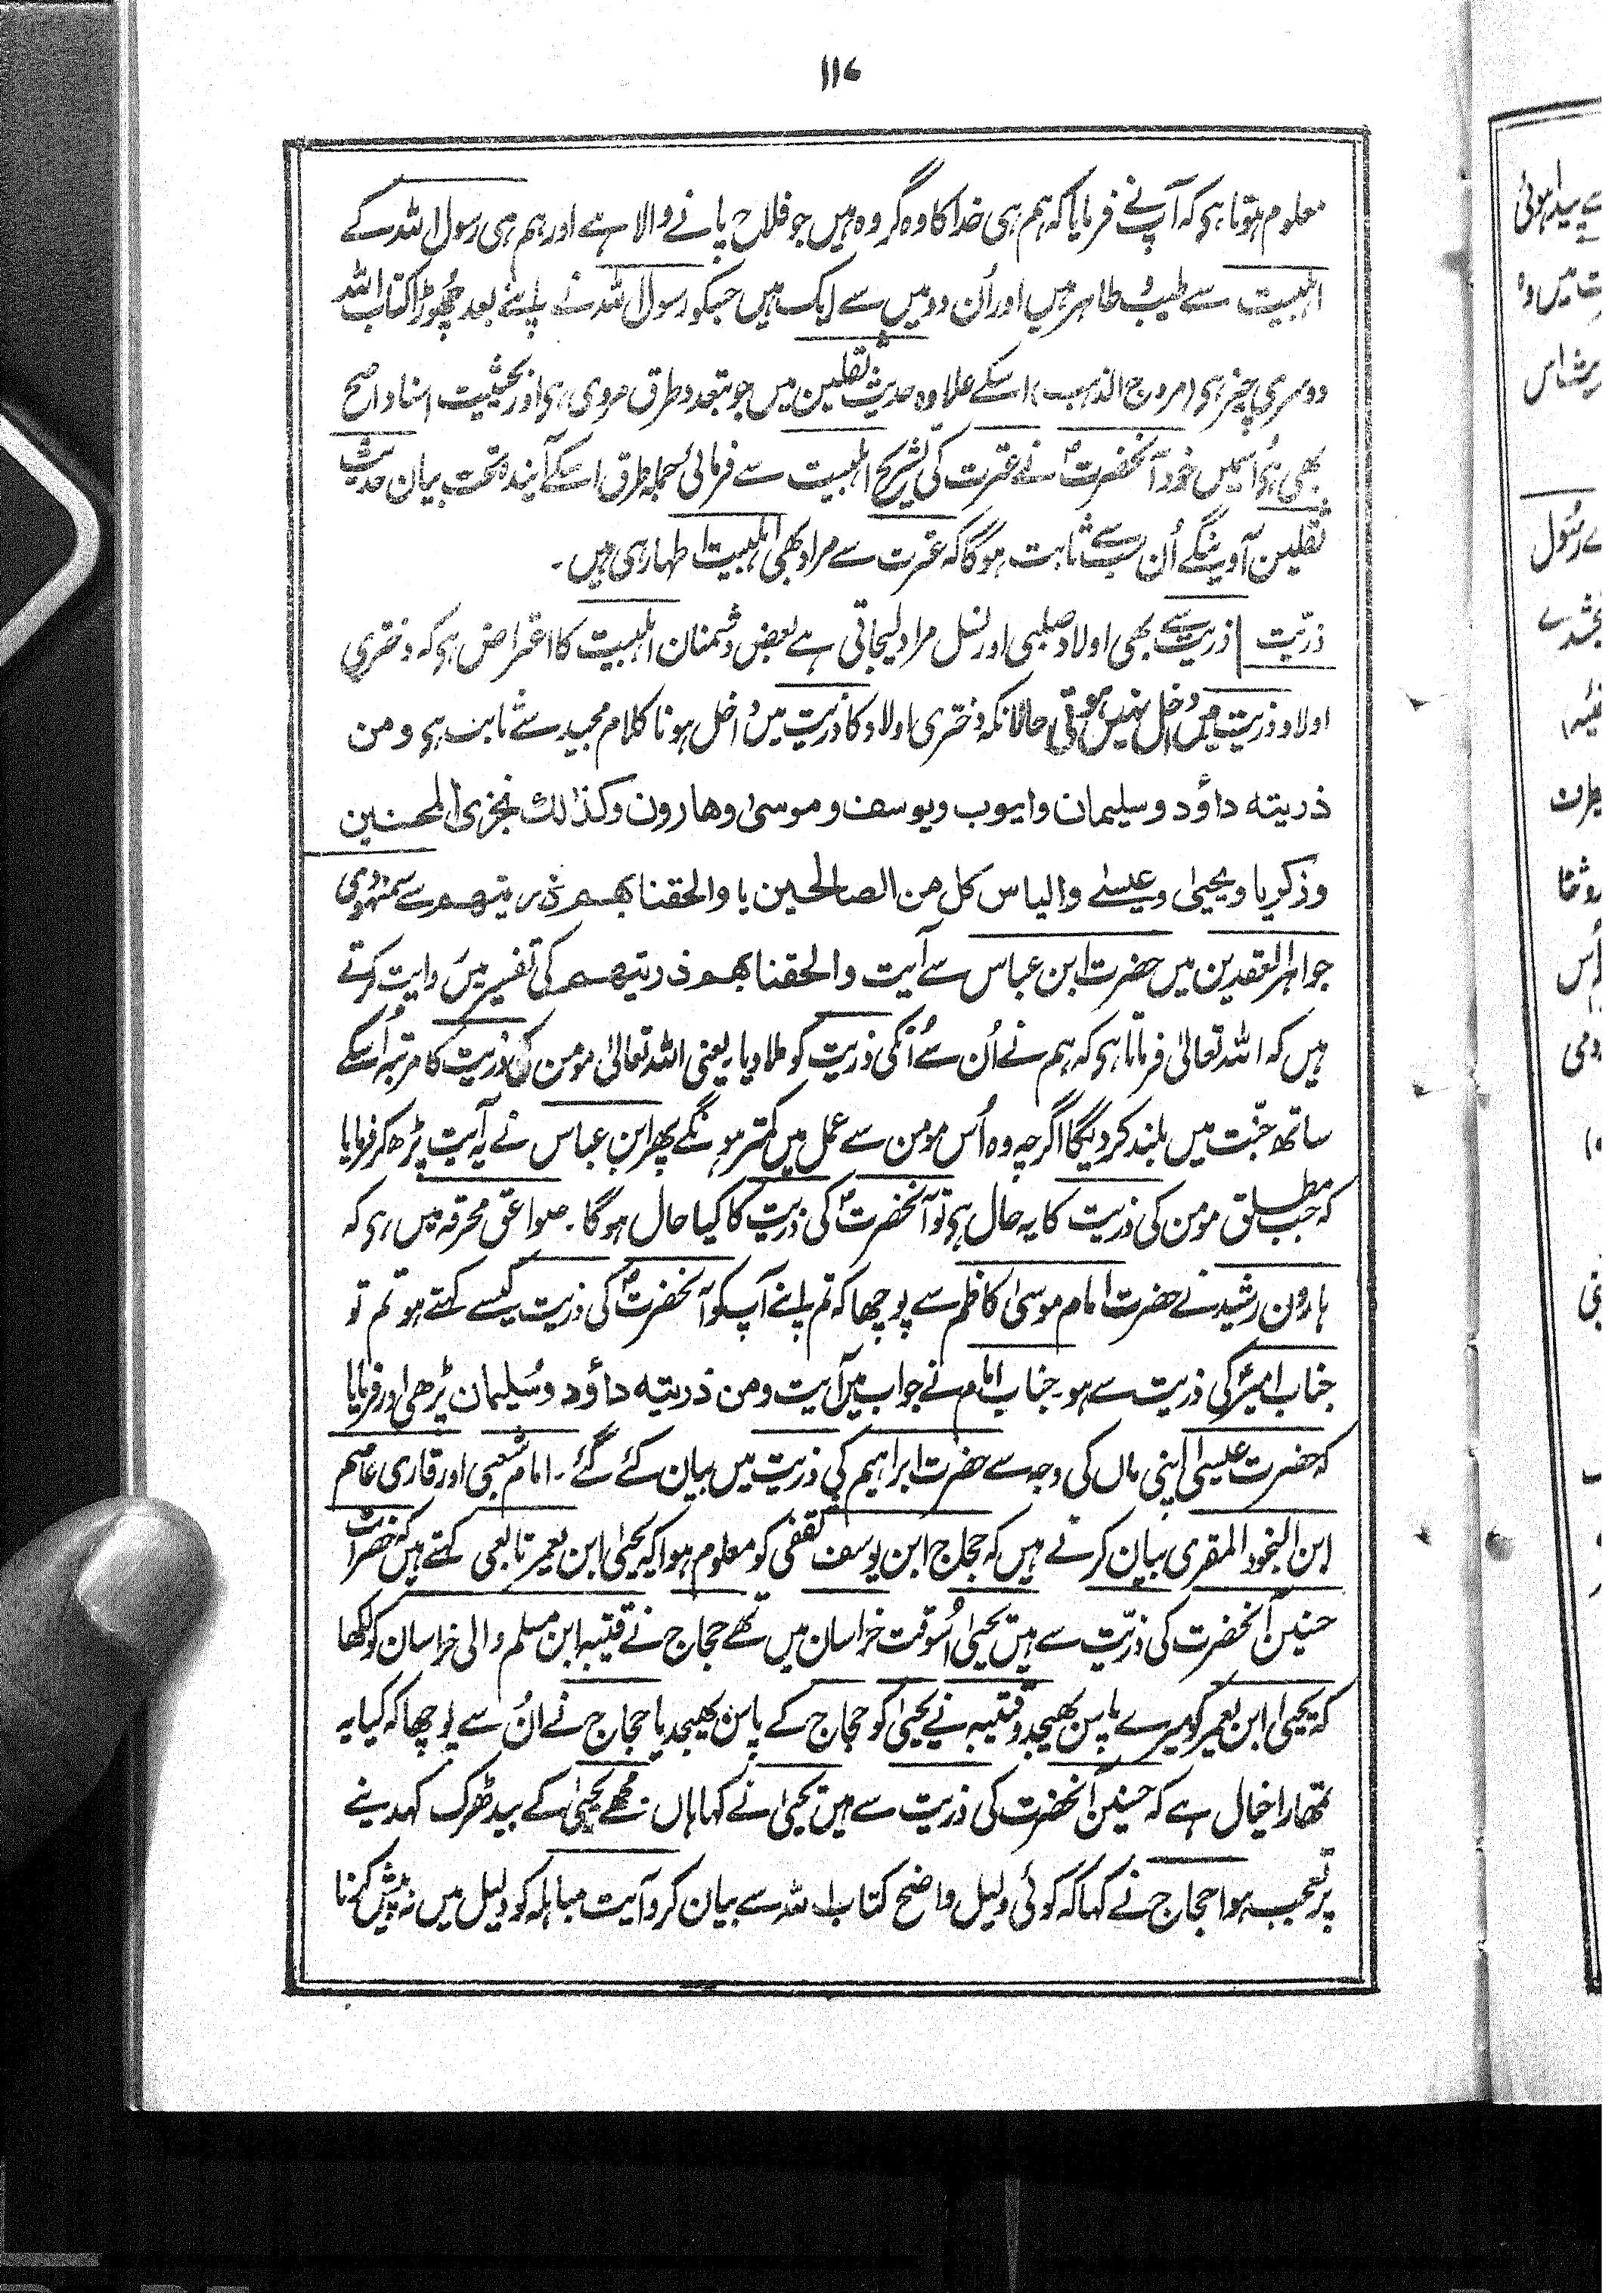 ۱۱۷
معلوم ہوتا ہی کہ آپ نے فرمایا کہ ہم ہی خدا کا وہ گروہ ہیں جو فلاح پانے والا ہے اور ہم ہی رسول اللہ کے
اہلبیت سے طیب طاہر ہیں اور اُن دو میں سے ایک ہیں جنکو رسول اللہ نے اپنے بعد چھوڑا کتاب اللہ
دوسری چیز ہی (مروج الذہب) اسکے علاوہ حدیث ثقلین میں جو بتعدد طرق مروی ہی اور بحیثیت اسناد اصح
بھی ہی اُسمیں خود آنحضرتؐ نے عترت کی تشریح اہلبیت سے فرمائی جملہ طرق اسکے آیندہ تحت بیان حدیث
ثقلین آوینگے اُن سب سے ثابت ہوگا کہ عترت سے مراد بھی اہلبیت اطہار ہی ہیں۔
ذرّیت | ذریت سے بھی اولاد صلبی اور نسل مراد لیجاتی ہے بعض دشمنان اہلبیت کا اعتراض ہی کہ دختری
اولاد ذریت میں داخل نہیں ہوتی حالانکہ دختری اولاد کا ذریت میں داخل ہونا کلام مجید سے ثابت ہی ومن
ذریته داؤد وسلیمان وایوب ویوسف وموسیٰ وهارون وکذالك نجزی المحسنین
وذکریا ویحییٰ وعیسےٰ والیاس کل من الصالحین یا والحقنا بهم ذریتهم سے سمنہودی
جواہر العقدین میں حضرت ابن عباس سے آیت والحقنا بهم ذریتهم کی تفسیر میں روایت کرتے
ہیں کہ اللہ تعالیٰ فرماتا ہی کہ ہم نے اُن سے اُنکی ذریت کو ملا دیا یعنی اللہ تعالیٰ مومن کی ذریت کا مرتبہ اُسکے
ساتھ جنّت میں بلند کر دیگا اگرچہ وہ اُس مومن سے عمل میں کمتر ہونگے پھر ابن عباس نے یہ آیت پڑھ کر فرمایا
کہ جب مطلق مومن کی ذریت کا یہ حال ہی تو آنحضرتؐ کی ذریت کا کیا حال ہوگا۔ صواعق محرقہ میں ہی کہ
ہارون رشید نے حضرت امام موسیٰ کاظم سے پوچھا کہ تم اپنے آپ کو آنحضرتؐ کی ذریت کیسے کہتے ہو تم تو
جناب امیرؑ کی ذریت سے ہو۔ جناب امام نے جواب میں آیت ومن ذریته داؤد وسُلیمان پڑھی اور فرمایا
کہ حضرت عیسیٰ اپنی ماں کی وجہ سے حضرت ابراہیم کی ذریت میں بیان کئے گئے۔ امام شعبی اور قاری عاصم
ابن النجود المقری بیان کرتے ہیں کہ حجاج ابن یوسف ثقفی کو معلوم ہوا کہ یحییٰ ابن یعمر تابعی کہتے ہیں کہ حضرات
حسنین آنحضرت کی ذرّیت سے ہیں یحییٰ اُسوقت خراسان میں تھے حجاج نے قتیبہ ابن مسلم والی خراسان کو لکھا
کہ یحییٰ ابن یعمر کو میرے پاس بھیجدو قتیبہ نے یحییٰ کو حجاج کے پاس بھیجدیا حجاج نے اُن سے پوچھا کہ کیا یہ
تمھارا خیال ہے کہ حسنین آنحضرت کی ذریت سے ہیں یحییٰ نے کہا ہاں مجھے یحییٰ کے بیدھڑک کہدینے
پر تعجب ہوا حجاج نے کہا کہ کوئی دلیل واضح کتاب اللہ سے بیان کرو آیت مباہلہ کو دلیل میں نہ پیش کرنا